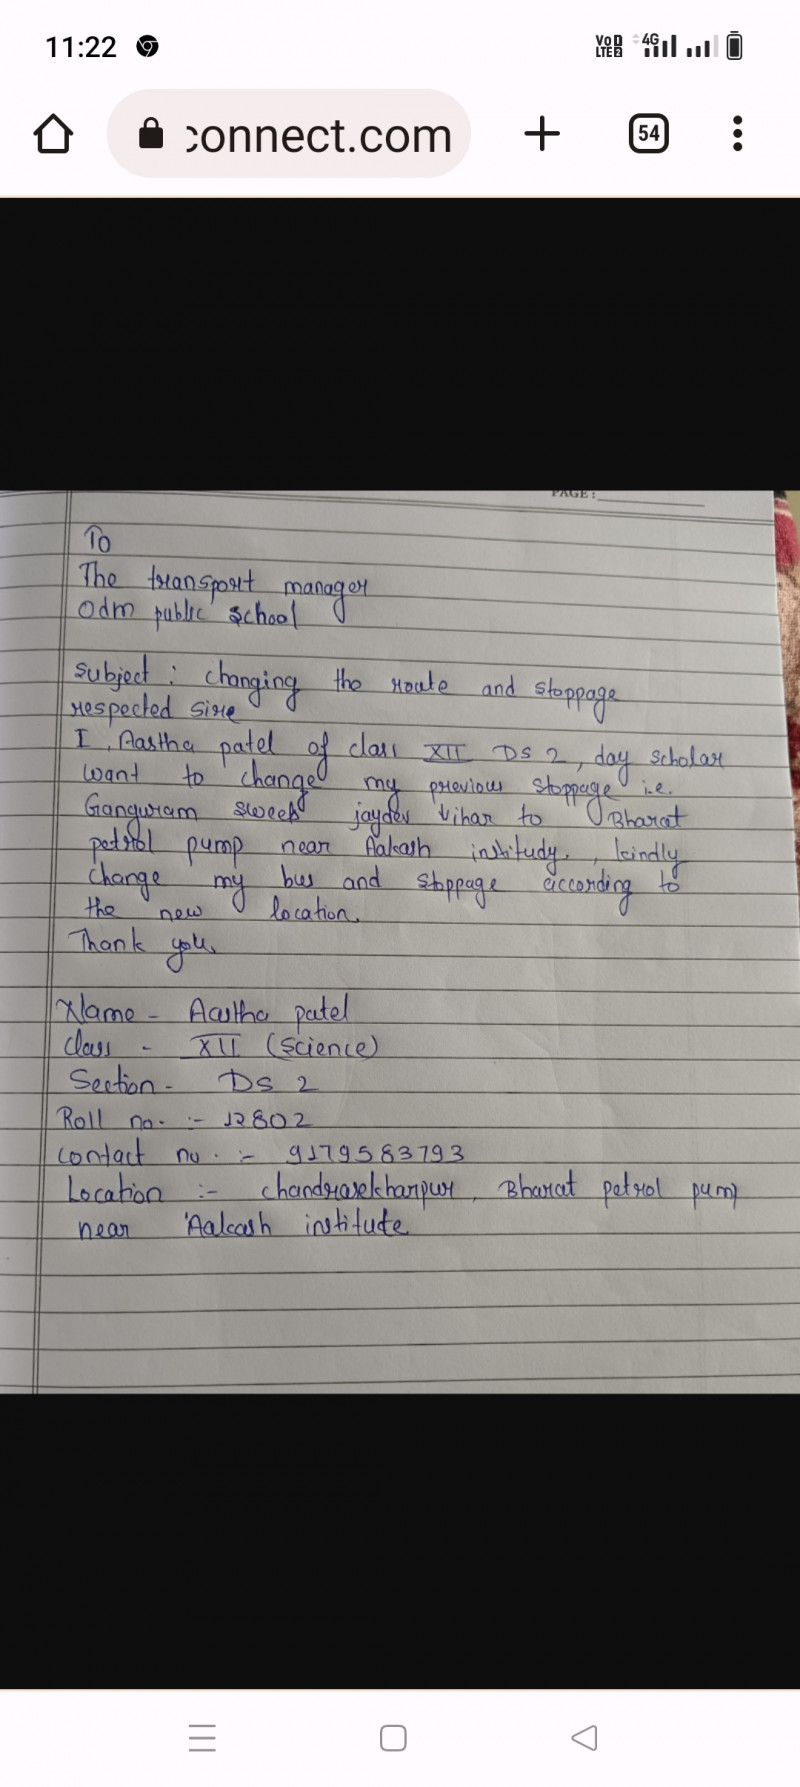 11:22
VoD LTE2 4G
connect.com
54
PAGE:
To
The transport manager
Odm public school
Subject : changing the route and stoppage
respected sire
I, Aastha patel of class XII DS 2, day scholar
want to change my previous stoppage i.e.
Ganguram sweets jaydev vihar to Bharat
petrol pump near Aakash institudy. , kindly
change my bus and stoppage according to
the new location.
Thank you.
Name - Aastha patel
class - XII (Science)
Section - DS 2
Roll no. :- 12802
contact no. :- 9179583793
Location :- chandrasekharpur, Bharat petrol pump
near Aakash institute